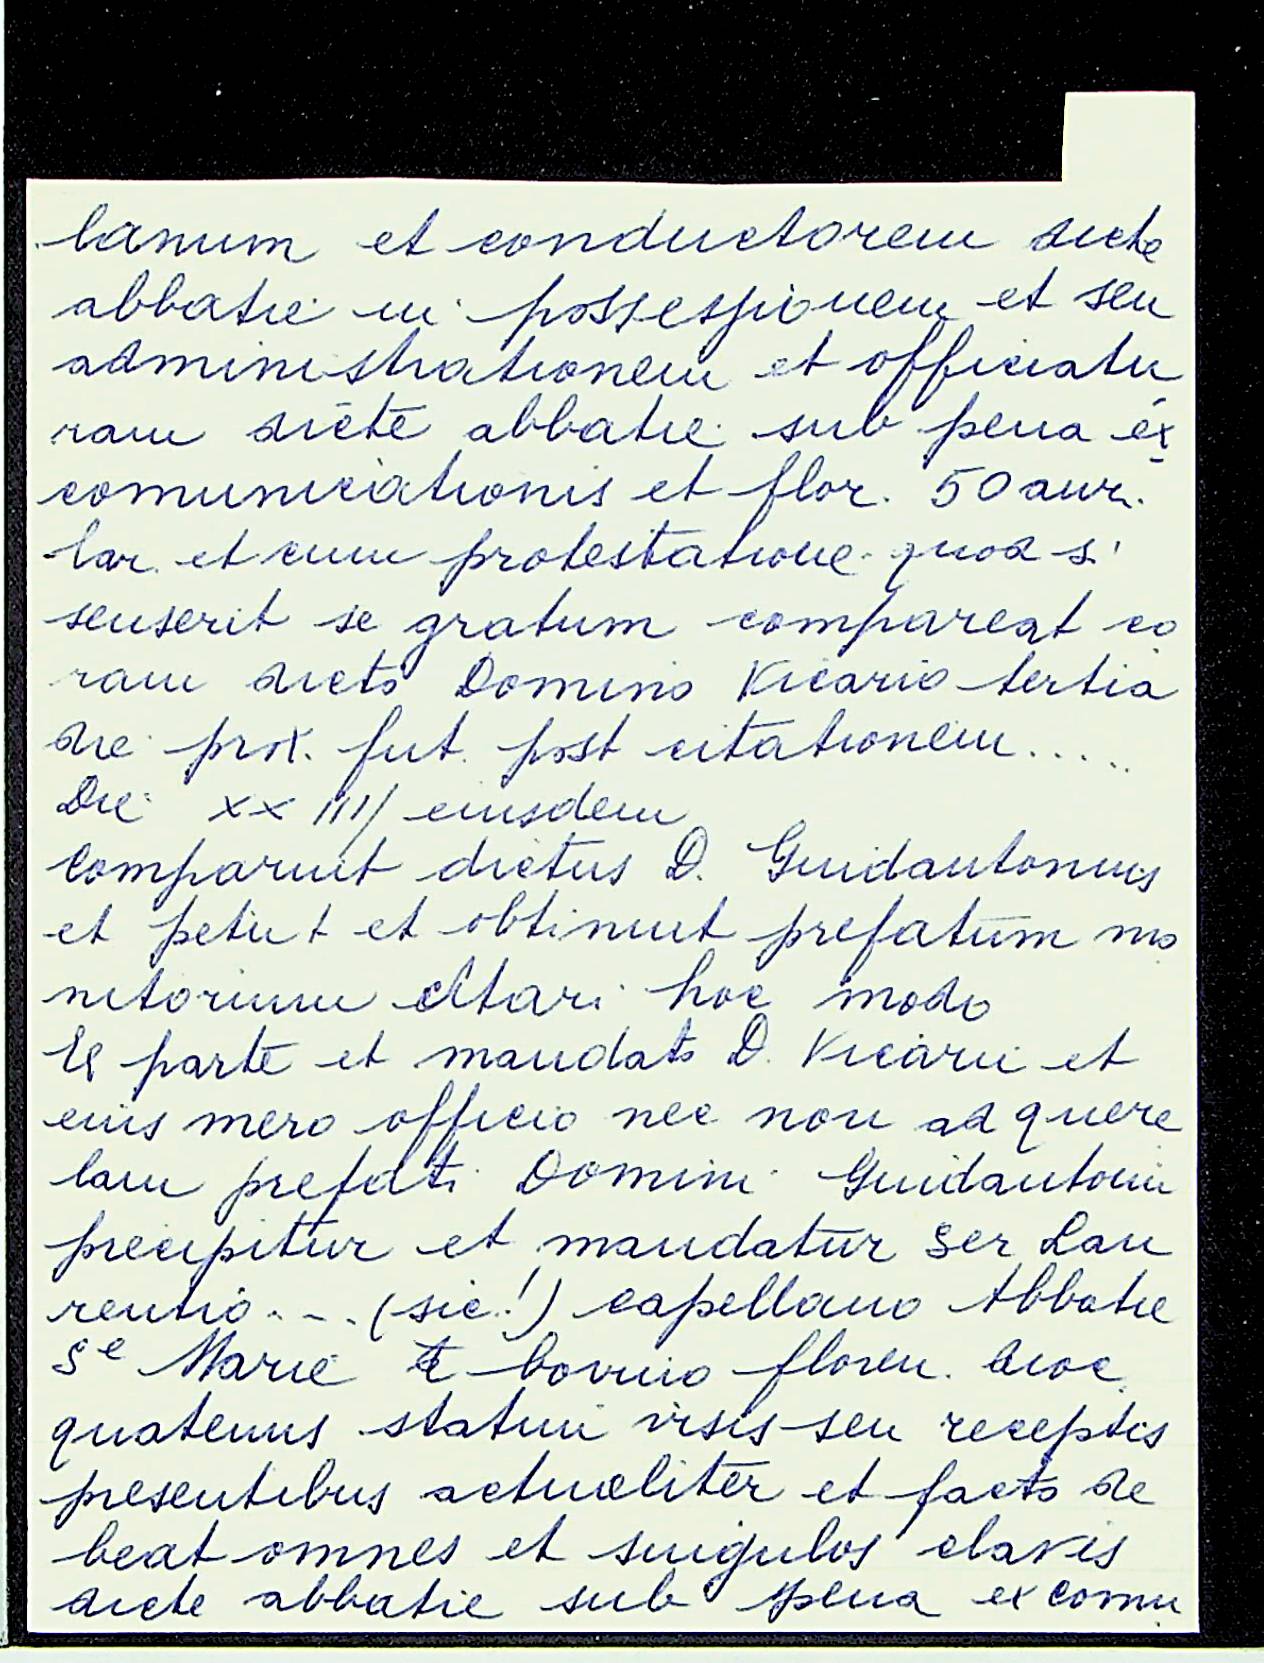 lanum et conductorem dicte
abbatie in possessionem et seu
administrationem et officiatu
ram dicte abbatie sub pena ex
comunicationis et flor. 50 aur.
lar. et cum protestatione quod si
senserit se gratum compareat co
ram dicto Domino Vicario tertia
die prox. fut. post citationem.....
Die XXIII/ eiusdem
Comparuit dictus D. Guidantonius
et petiit et obtinuit prefatum mo
nitorium citari hoc modo
Ex parte et mandato D. Vicarii et
eius mero officio nec non ad quere
lam prefati Domini Guidantonii
precipitur et mandatur Ser Lau
rentio... (sic!) capellano Abbatie
Se Marie de bovino floren. dioc.
quatenus statim visis seu receptis
presentibus actualiter et facto de
beat omnes et singulos clavis
dicte abbatie sub pena excomu